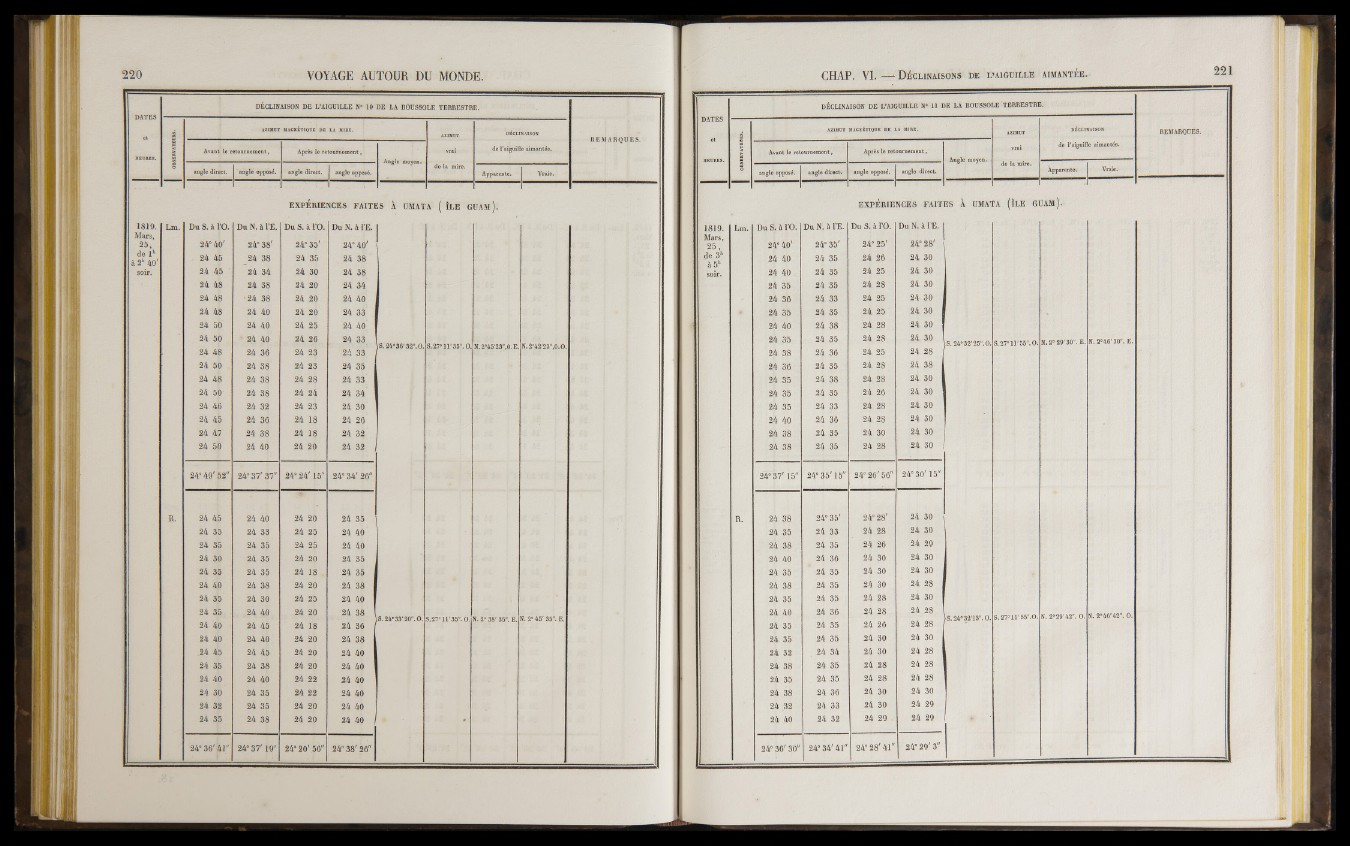 220
VOYAGE AUTOUR DU MONDE.
DÉCLINAISON DE L'AIGUILLE N° 10 DE LA BOUSSOLE TERRESTRE.
DATES et HEURES.
OBSERVATEURS.
AZIMUT MAGNÉTIQUE DE LA MIRE.
Avant le retournement, Après le retournement,
angle direct. angle opposé. angle direct. angle opposé.
Angle moyen.
AZIMUT vrai de la mire.
DÉCLINAISON de l'aiguille aimantée.
Apparente. Vraie.
REMARQUES.
EXPÉRIENCES FAITES À UMATA ( ÎLE GUAM).
1819. Mars, 25, de 1h à 2h 40' soir.
Lm. Du S. à l'O. Du N. à l'E. Du S. à l'O. Du N. à l'E.
24° 40' 24° 38' 24° 35' 24° 40'
24 45 24 38 24 35 24 38
24 45 24 34 24 30 24 38
24 48 24 38 24 20 24 34
24 48 24 38 24 20 24 40
24 48 24 40 24 20 24 33
24 50 24 40 24 25 24 40
24 50 24 40 24 26 24 33
24 48 24 36 24 23 24 33
S. 24°36'32".O. S.27°11'35".O. N.2°42'25".O.O.
24 50 24 38 24 23 24 35
24 48 24 38 24 28 24 33
24 50 24 38 24 24 24 34
24 46 24 32 24 23 24 30
24 45 24 36 24 18 24 26
24 47 24 38 24 18 24 32
24 50 24 40 24 20 24 32
24° 49' 52" 24° 37' 37" 24° 24' 15" 24° 34' 26"
R. 24 45 24 40 24 20 24 35
24 35 24 33 24 25 24 40
24 35 24 35 24 25 24 40
24 30 24 35 24 20 24 35
24 35 24 35 24 18 24 35
24 40 24 38 24 20 24 38
24 35 24 30 24 25 24 40
24 35 24 40 24 20 24 38
24 40 24 45 24 18 24 36
S. 24°33'20".O. S.27°11'35".O. N. 2° 38' 15". E. N. 2° 45' 55". E.
24 40 24 40 24 20 24 38
24 45 24 45 24 20 24 40
24 35 24 38 24 20 24 40
24 40 24 40 24 22 24 40
24 30 24 35 24 22 24 40
24 32 24 35 24 20 24 40
24 35 24 38 24 20 24 40
24° 36' 41" 24° 37' 19" 24° 20' 56" 24° 38' 26"
CHAP. VI. — DÉCLINAISONS DE L'AIGUILLE AIMANTÉE.
221
DÉCLINAISON DE L'AIGUILLE N° 13 DE LA BOUSSOLE TERRESTRE.
DATES et HEURES.
OBSERVATEURS.
AZIMUT MAGNÉTIQUE DE LA MIRE.
Avant le retournement, Après le retournement,
angle opposé. angle direct. angle opposé. angle direct.
Angle moyen.
AZIMUT vrai de la mire.
DÉCLINAISON de l'aiguille aimantée.
Apparente. Vraie.
REMARQUES.
EXPÉRIENCES FAITES À UMATA (ÎLE GUAM).
1819. Mars, 25, de 3h à 5h soir.
Lm. Du S. à l'O. Du N. à l'E. Du S. à l'O. Du N. à l'E.
24° 40' 24° 35' 24° 25' 24° 28'
24 40 24 35 24 26 24 30
24 40 24 35 24 25 24 30
24 35 24 35 24 28 24 30
24 36 24 33 24 25 24 30
24 35 24 35 24 25 24 30
24 40 24 38 24 28 24 30
24 35 24 35 24 28 24 30
S. 24°32'25".O. S.27°11'55".O. N. 2° 29' 30". E. N. 2°46' 30". E.
24 38 24 36 24 25 24 28
24 36 24 35 24 28 24 38
24 35 24 38 24 28 24 30
24 35 24 35 24 26 24 30
24 35 24 33 24 28 24 30
24 40 24 36 24 28 24 30
24 38 24 35 24 30 24 30
24 38 24 35 24 28 24 30
24° 37' 15" 24° 35' 15" 24° 26' 56" 24° 30' 15"
R. 24 38 24° 35' 24° 28' 24 30
24 35 24 35 24 28 24 30
24 38 24 35 24 26 24 29
24 40 24 36 24 30 24 30
24 35 24 35 24 30 24 30
24 38 24 35 24 30 24 28
24 35 24 35 24 28 24 30
24 40 24 36 24 28 24 28
S. 24°32'13".O. S. 27°11'55".O. N. 2°29'42". O. N. 2°46'42". O.
24 35 24 35 24 26 24 28
24 35 24 35 24 30 24 30
24 32 24 34 24 30 24 28
24 38 24 35 24 28 24 28
24 35 24 35 24 28 24 28
24 38 24 36 24 30 24 30
24 32 24 33 24 30 24 29
24 40 24 32 24 29 24 29
24° 36' 30" 24° 34' 41" 24° 28' 41" 24° 29' 3"